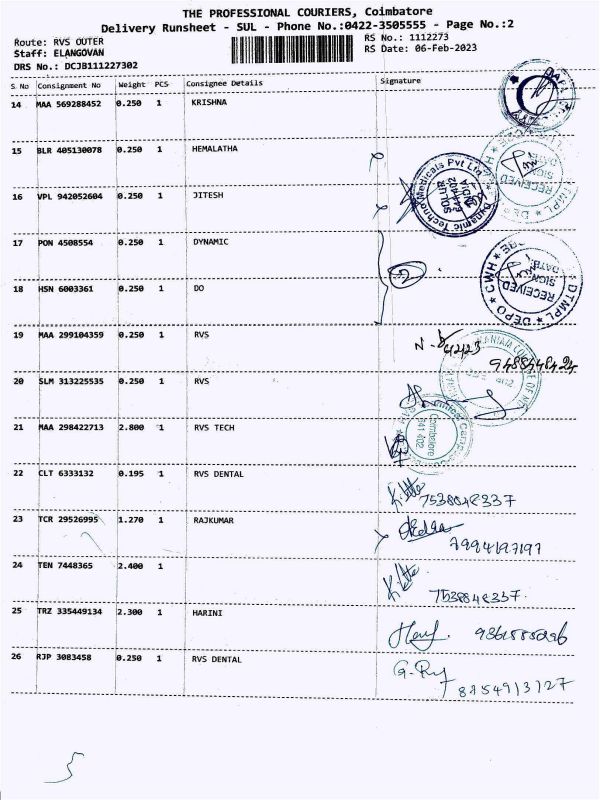 THE PROFESSIONAL COURIERS, Coimbatore
Delivery Runsheet - SUL - Phone No.:0422-3505555 - Page No.:2
Route: RVS OUTER
RS No.: 1112273
Staff: ELANGOVAN
RS Date: 06-Feb-2023
DRS No.: DCJB111227302
S. No Consignment No Weight PCS Consignee Details Signature
14 MAA 569288452 0.250 1 KRISHNA
15 BLR 405130078 0.250 1 HEMALATHA
16 VPL 942052604 0.250 1 JITESH
Dynamic Techno Medicals Pvt Ltd
SULUR
641402
17 PON 4508554 0.250 1 DYNAMIC
18 HSN 6003361 0.250 1 DO
CWH DTMPL DEPO
RECEIVED
SIGN
DATE
19 MAA 299104359 0.250 1 RVS
9488448424
20 SLM 313225535 0.250 1 RVS
21 MAA 298422713 2.800 1 RVS TECH
Coimbatore
641 402
22 CLT 6333132 0.195 1 RVS DENTAL
7538848337
23 TCR 29526995 1.270 1 RAJKUMAR
7994197197
24 TEN 7448365 2.400 1
7538848337.
25 TRZ 335449134 2.300 1 HARINI
26 RJP 3083458 0.250 1 RVS DENTAL
8254913127